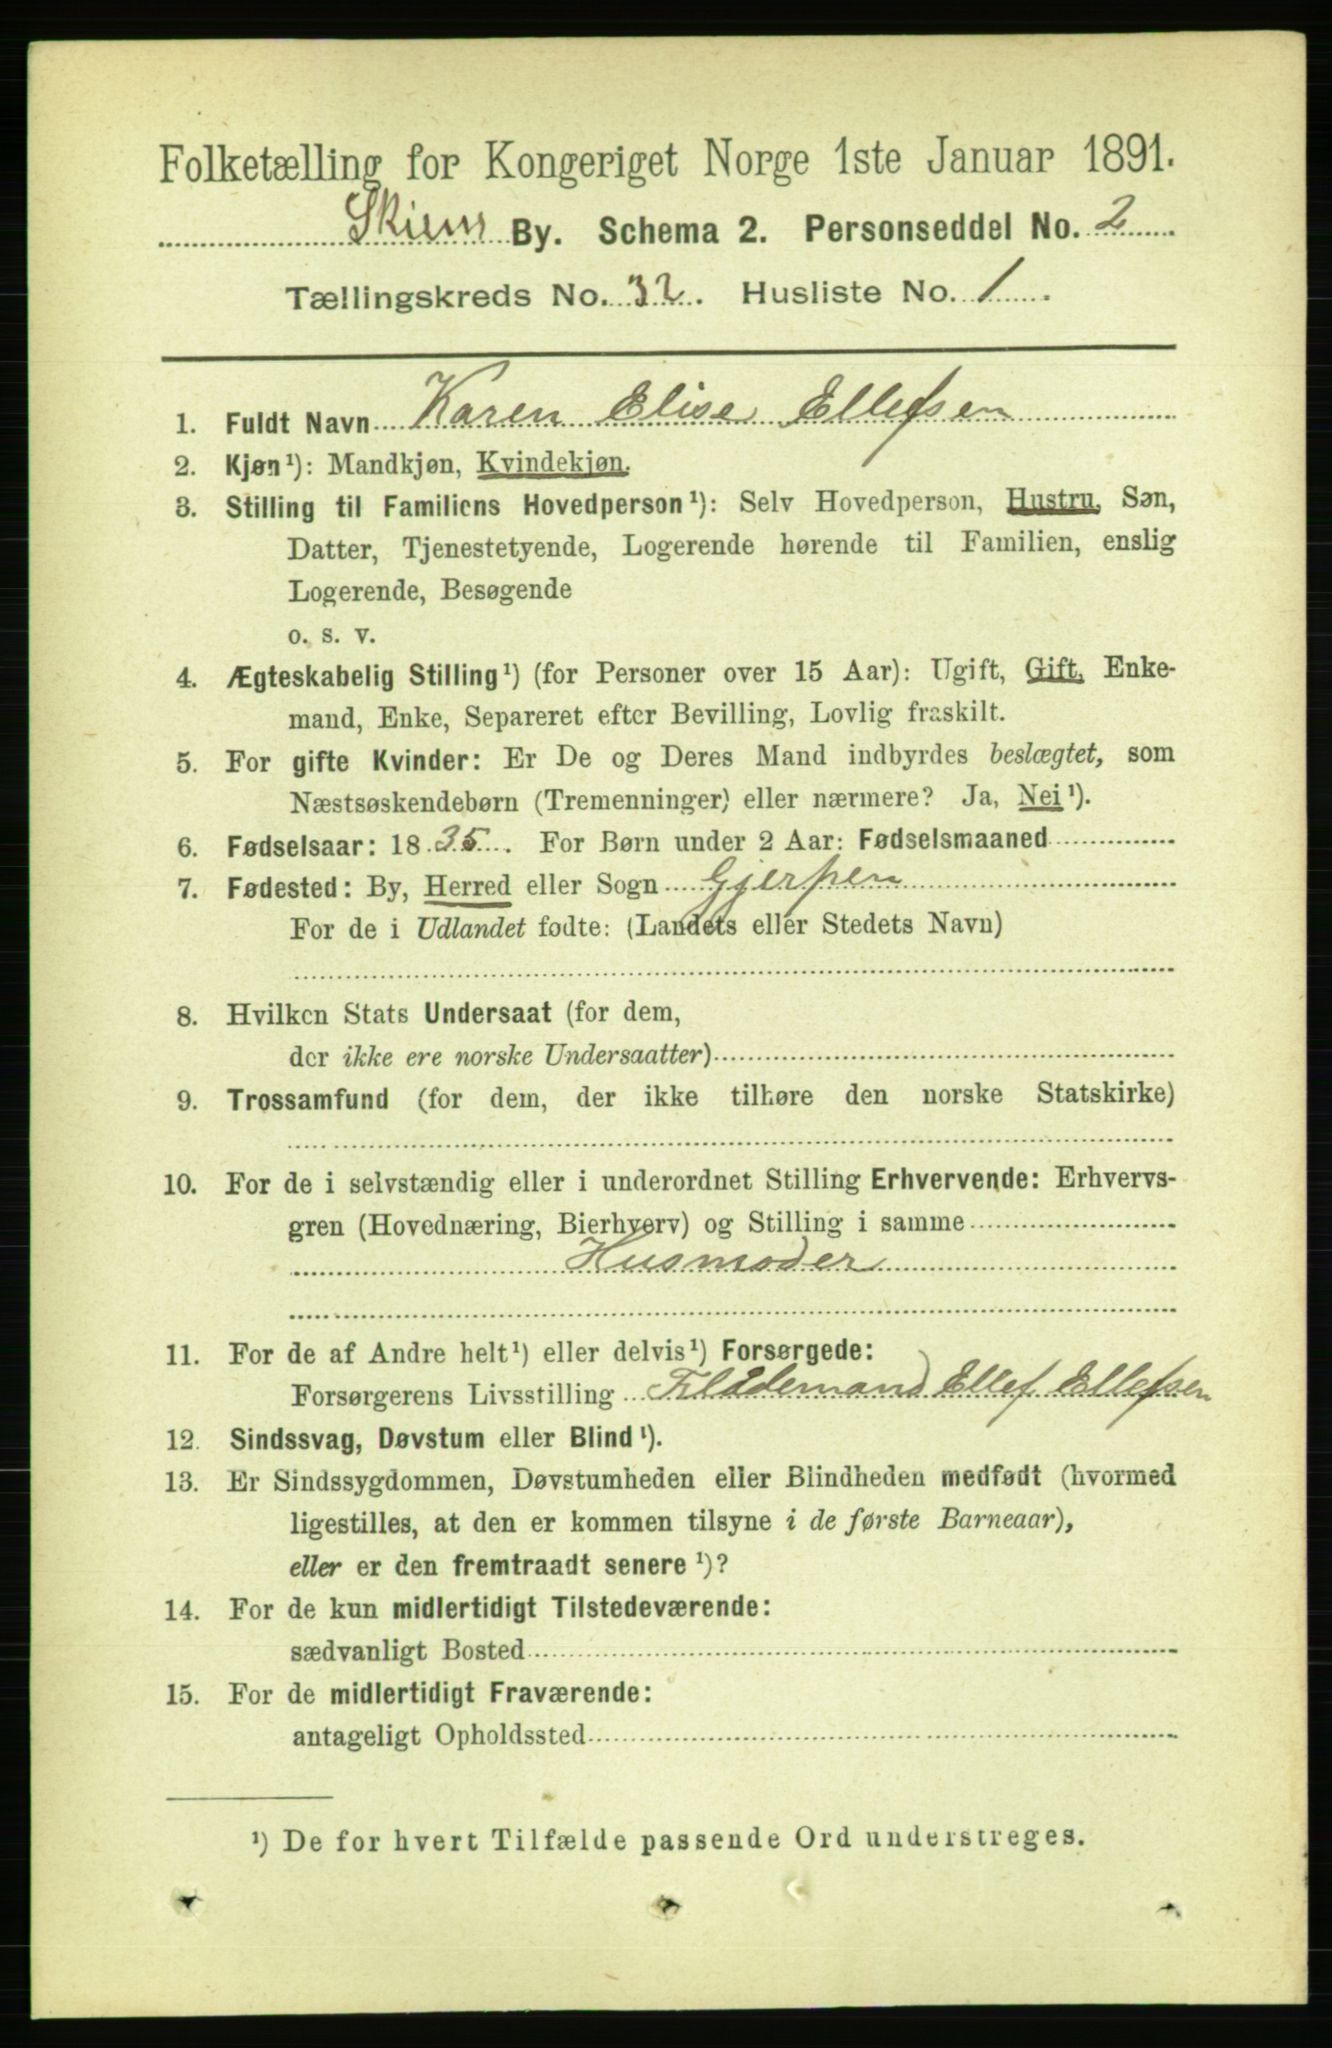 Folketælling for Kongeriget Norge 1ste Januar 1891.
Skiens By. Schema 2. Personseddel No. 2
Tællingskreds No. 32. Husliste No. 1
1. Fuldt Navn Karen Elise Ellefsen
2. Kjøn¹): Mandkjøn, Kvindekjøn.
3. Stilling til Familiens Hovedperson¹): Selv Hovedperson, Hustru, Søn,
Datter, Tjenestetyende, Logerende hørende til Familien, enslig
Logerende, Besøgende
o. s. v.
4. Ægteskabelig Stilling¹) (for Personer over 15 Aar): Ugift, Gift, Enke-
mand, Enke, Separeret efter Bevilling, Lovlig fraskilt.
5. For gifte Kvinder: Er De og Deres Mand indbyrdes beslægtet, som
Næstsøskendebørn (Tremenninger) eller nærmere? Ja, Nei¹).
6. Fødselsaar: 1835. For Børn under 2 Aar: Fødselsmaaned
7. Fødested: By, Herred eller Sogn Gjerpen
For de i Udlandet fødte: (Landets eller Stedets Navn)
8. Hvilken Stats Undersaat (for dem,
der ikke ere norske Undersaatter)
9. Trossamfund (for dem, der ikke tilhøre den norske Statskirke)
10. For de i selvstændig eller i underordnet Stilling Erhvervende: Erhvervs-
gren (Hovednæring, Bierhverv) og Stilling i samme
Husmoder
11. For de af Andre helt¹) eller delvis¹) Forsørgede:
Forsørgerens Livsstilling Flådemand Ellef Ellefsen
12. Sindssvag, Døvstum eller Blind¹).
13. Er Sindssygdommen, Døvstumheden eller Blindheden medfødt (hvormed
ligestilles, at den er kommen tilsyne i de første Barneaar),
eller er den fremtraadt senere¹)?
14. For de kun midlertidigt Tilstedeværende:
sædvanligt Bosted
15. For de midlertidigt Fraværende:
antageligt Opholdssted
¹) De for hvert Tilfælde passende Ord understreges.